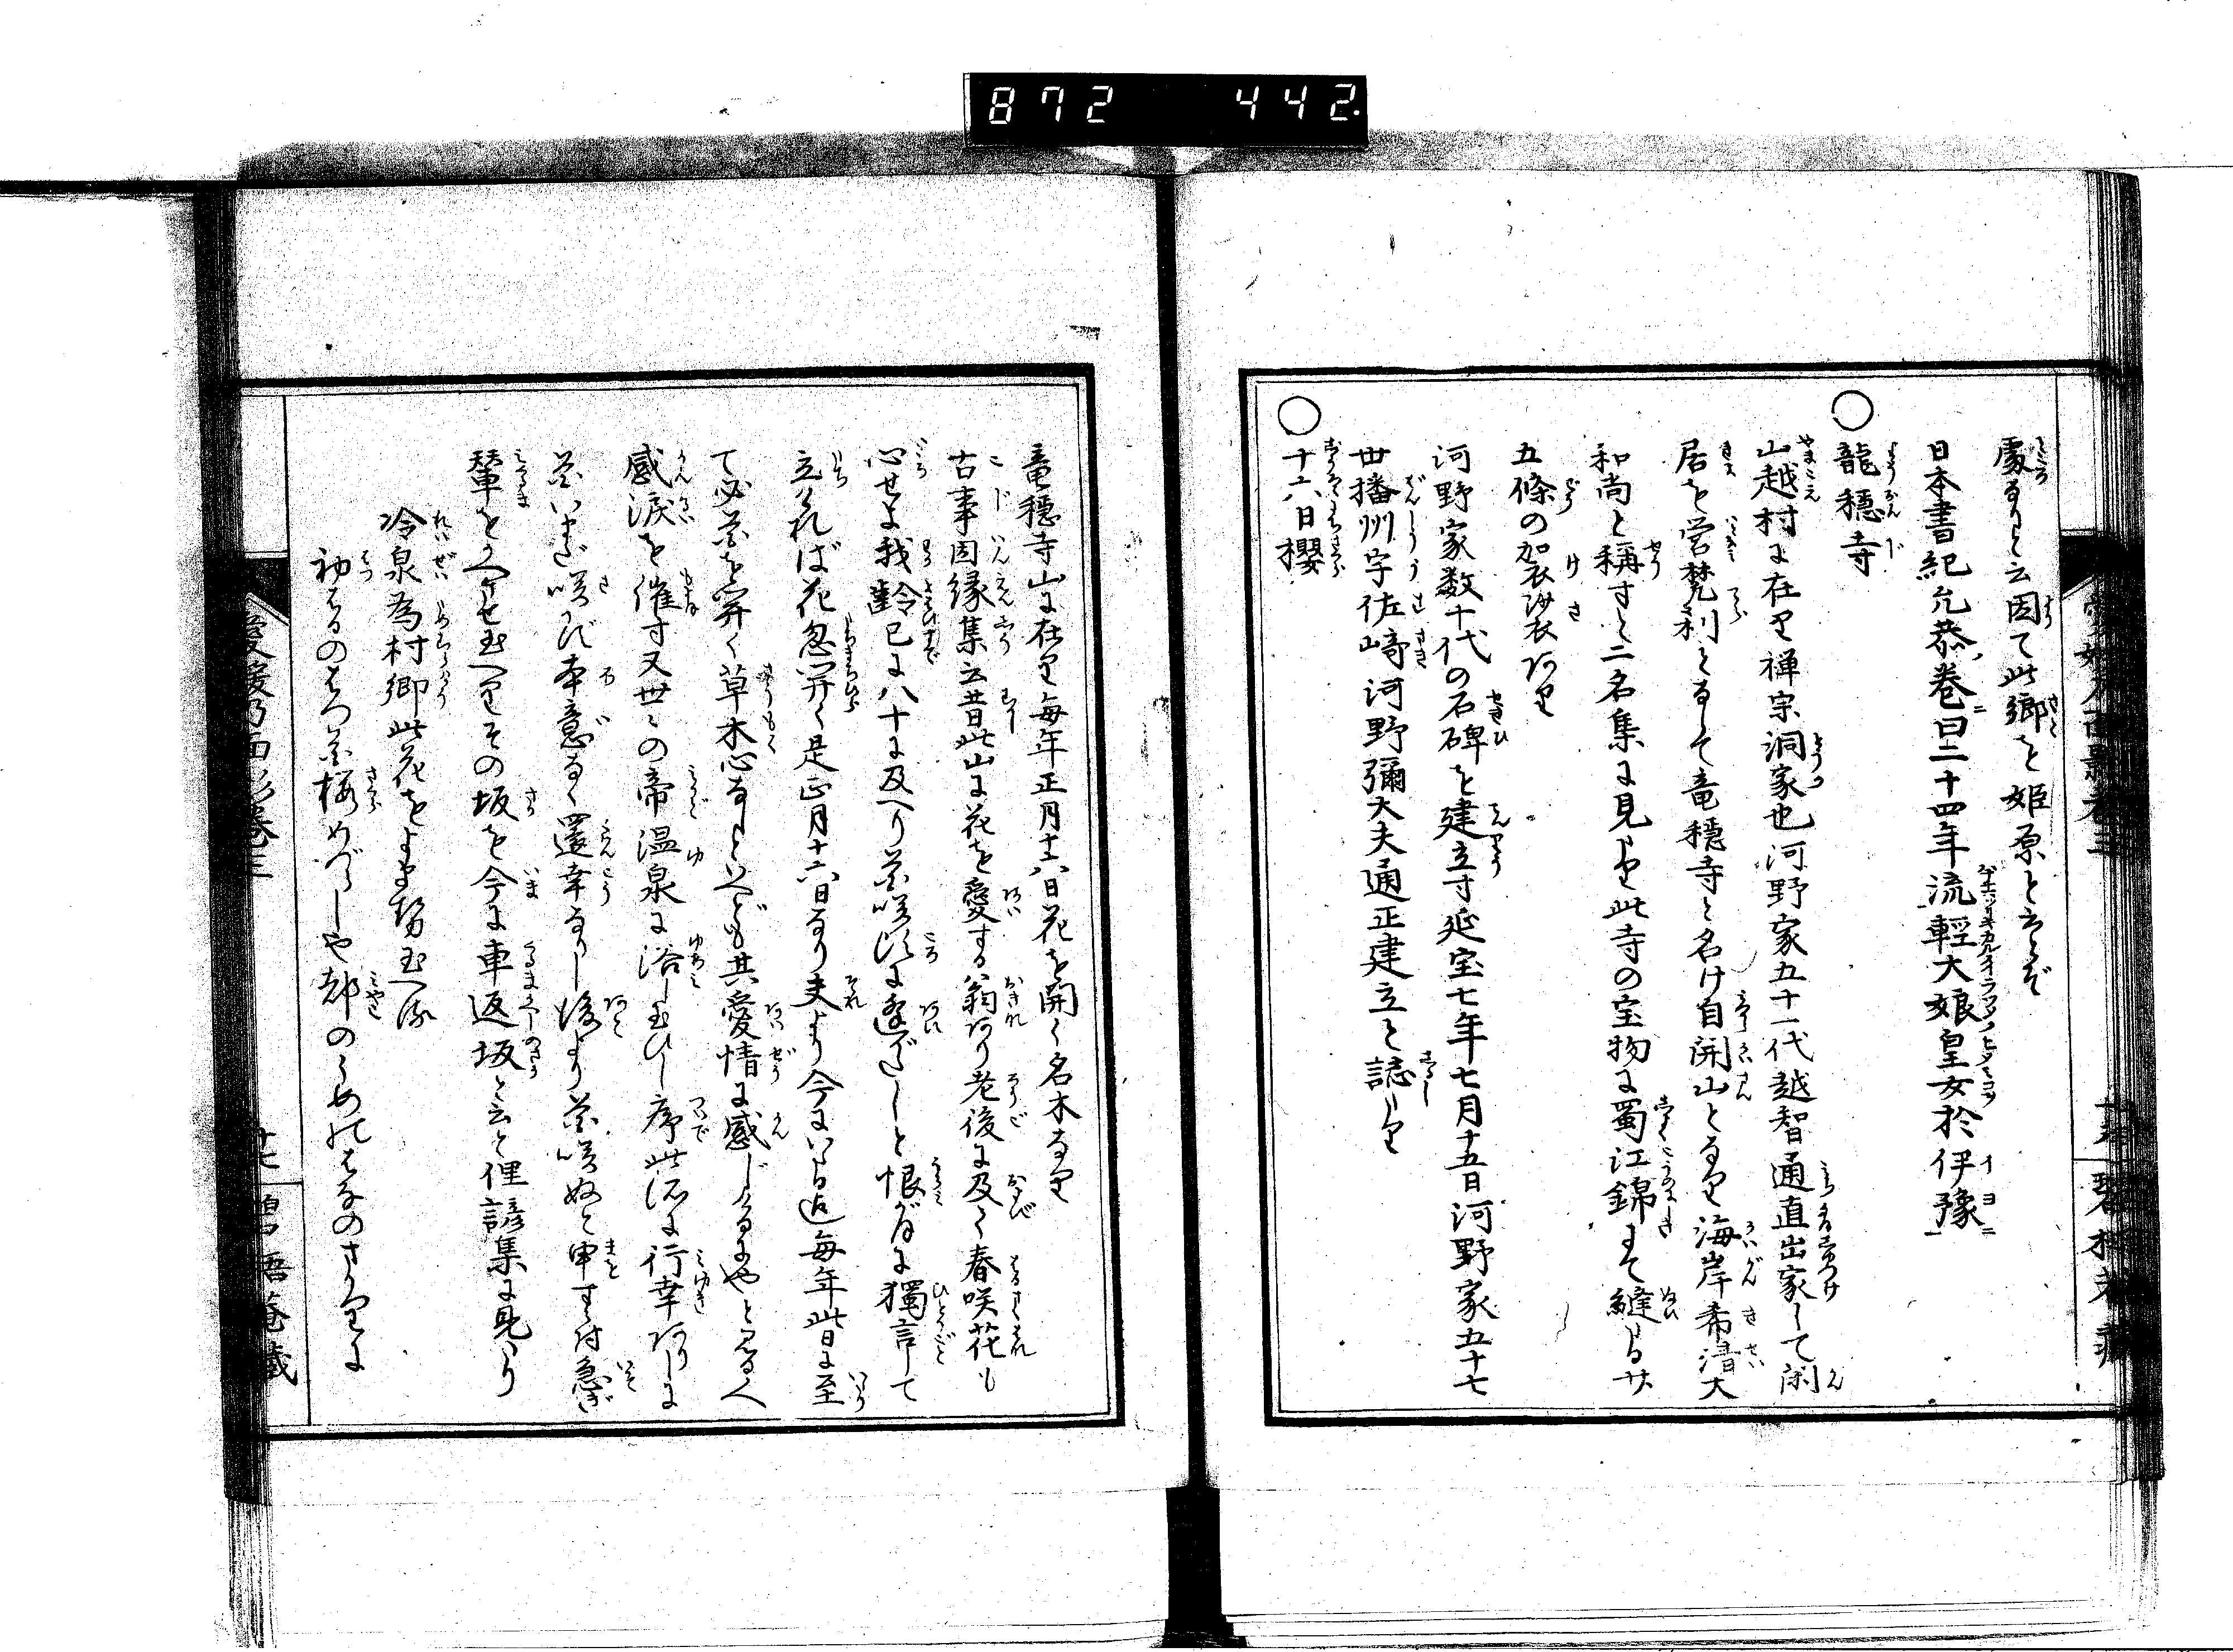 872 442
處なりと云因て此郷を姫原と云とぞ
日本書紀允恭巻ニ曰二十四年流輕大娘皇女於伊豫
○龍穏寺
山越村に在り禅宗洞家也河野家五十一代越智通直出家して閑
居を営梵刹となして竜穏寺と名け自開山となり海岸希清大
和尚と稱すと二名集に見ゆ此寺の宝物に蜀江錦にて縫たる廿
五條の加衣沙衣あり
河野家数十代の石碑を建立す延宝七年七月十五日河野家五十七
世播州宇佐﨑河野彌大夫通正建立と誌せり
○十六日櫻
竜穏寺山に在り毎年正月十六日花を開く名木なり
古事因縁集云昔此山に花を愛する翁あり老後に及く春咲花も
心せよ我齢已に八十に及へり花咲頃に逢がたしと恨がほに獨言して
立れば花忽開く是正月十六日なり夫より今にいたる迠毎年此日に至
て必花を開く草木心なしといへども其愛情に感じけるにやと見る人
感涙を催す又世々の帝温泉に浴し玉ひし序此池に行幸ありしに
花いまだ咲ず本意なく還幸なりし後より花咲ぬと申す付急ぎ
輦をかへさせ玉へりその坂を今に車返坂と云と俚諺集に見へたり
冷泉為村卿此花をよませ玉へる
初はるのはつ花桜めづらしや都のうめのはなのさかりに
愛媛乃面影巻三
廿七
碧梧菴蔵